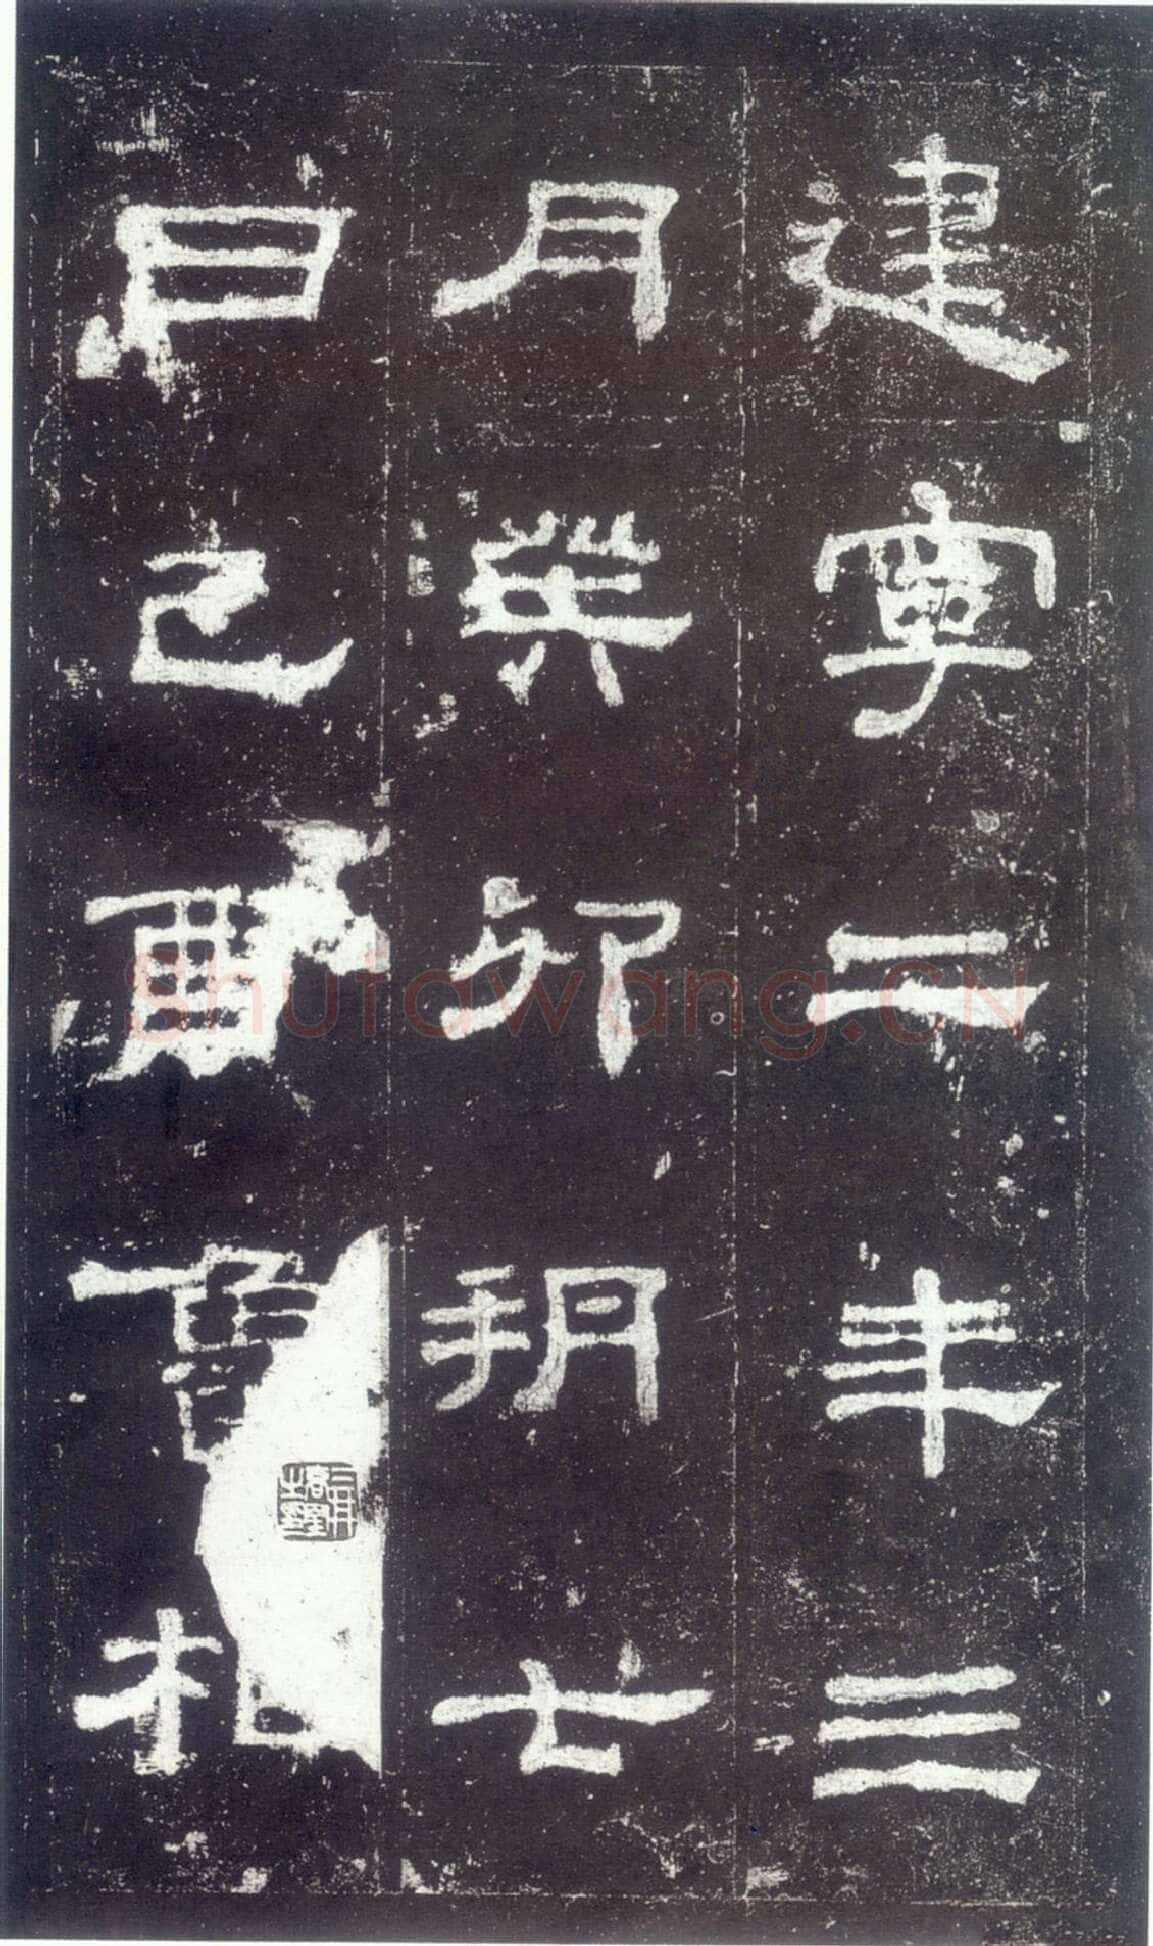 建寧二年三
月癸卯朔七
日己酉魯相
Shufawang.CN